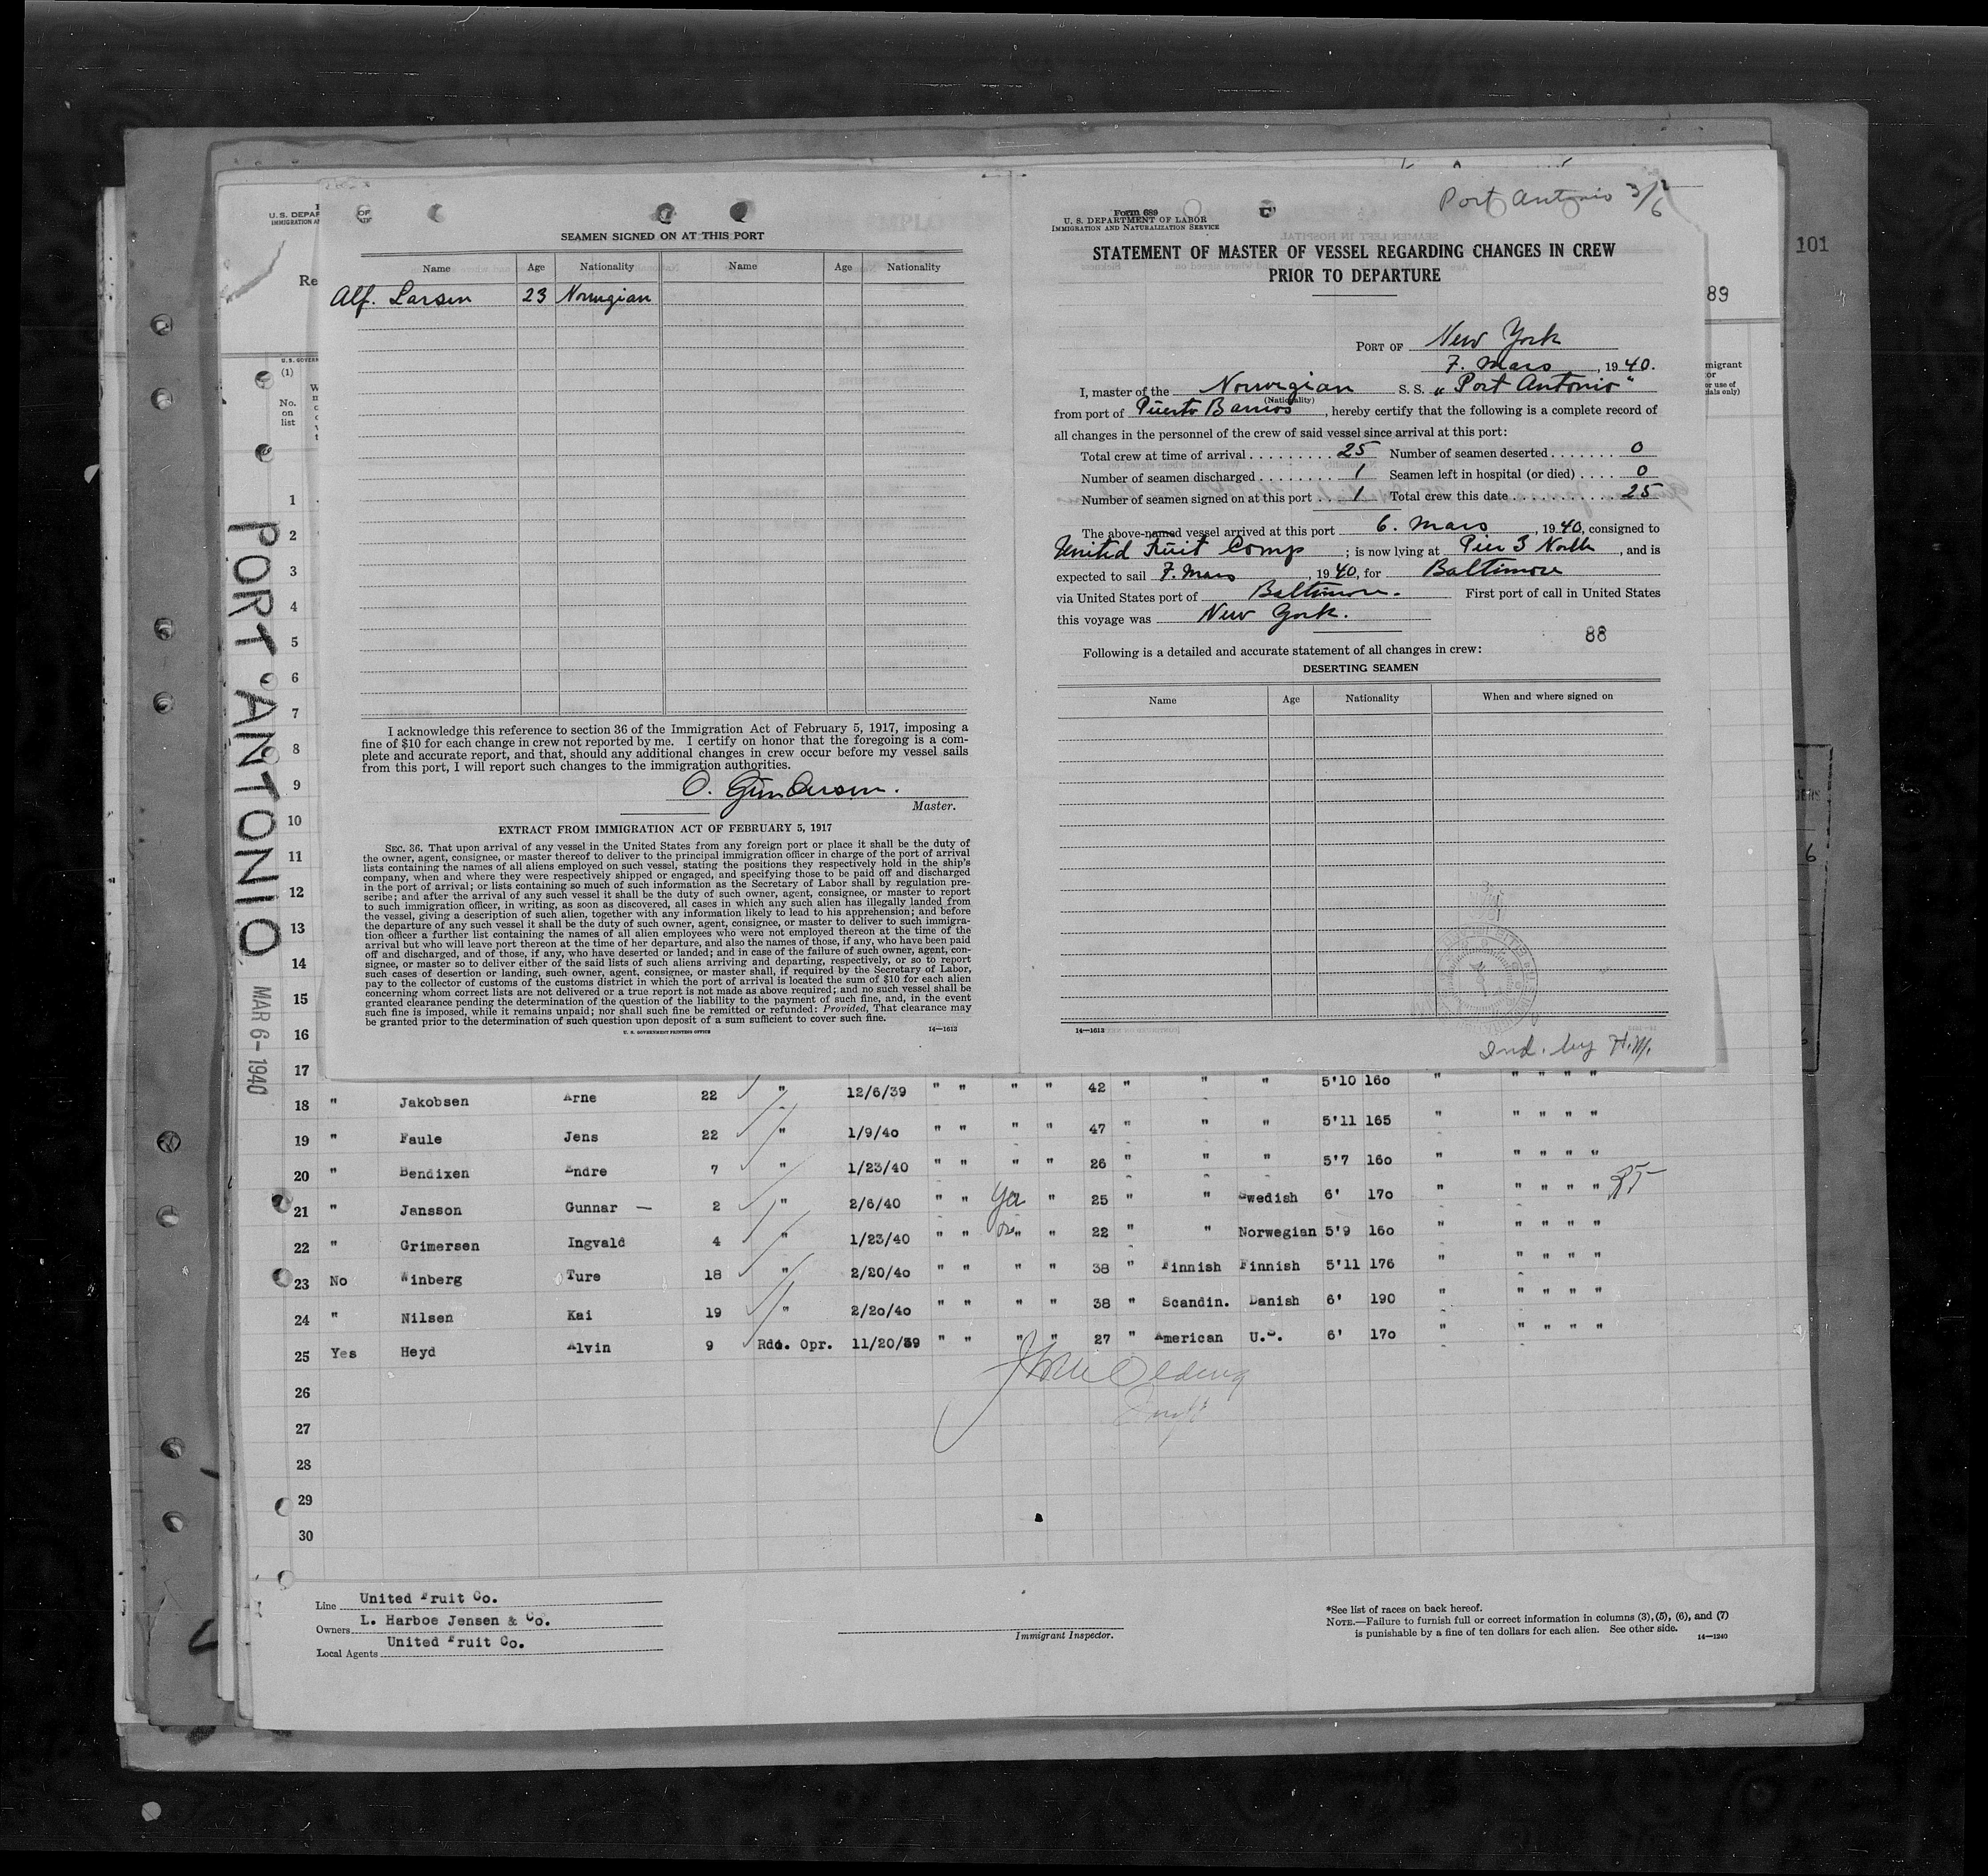 Port Antonio 3/6
101
89
88
U.S. DEPAR
IMMIGRATION A
Re
U.S. GOVERN
(1)
No.
on
list
SEAMEN SIGNED ON AT THIS PORT
Name Age Nationality Name Age Nationality
Alf. Larsen 23 Norwegian
I acknowledge this reference to section 36 of the Immigration Act of February 5, 1917, imposing a
fine of $10 for each change in crew not reported by me. I certify on honor that the foregoing is a com-
plete and accurate report, and that, should any additional changes in crew occur before my vessel sails
from this port, I will report such changes to the immigration authorities.
O. Gundersen.
Master.
EXTRACT FROM IMMIGRATION ACT OF FEBRUARY 5, 1917
SEC. 36. That upon arrival of any vessel in the United States from any foreign port or place it shall be the duty of
the owner, agent, consignee, or master thereof to deliver to the principal immigration officer in charge of the port of arrival
lists containing the names of all aliens employed on such vessel, stating the positions they respectively hold in the ship's
company, when and where they were respectively shipped or engaged, and specifying those to be paid off and discharged
in the port of arrival; or lists containing so much of such information as the Secretary of Labor shall by regulation pre-
scribe; and after the arrival of any such vessel it shall be the duty of such owner, agent, consignee, or master to report
to such immigration officer, in writing, as soon as discovered, all cases in which any such alien has illegally landed from
the vessel, giving a description of such alien, together with any information likely to lead to his apprehension; and before
the departure of any such vessel it shall be the duty of such owner, agent, consignee, or master to deliver to such immigra-
tion officer a further list containing the names of all alien employees who were not employed thereon at the time of the
arrival but who will leave port thereon at the time of her departure, and also the names of those, if any, who have been paid
off and discharged, and of those, if any, who have deserted or landed; and in case of the failure of such owner, agent, con-
signee, or master so to deliver either of the said lists of such aliens arriving and departing, respectively, or so to report
such cases of desertion or landing, such owner, agent, consignee, or master shall, if required by the Secretary of Labor,
pay to the collector of customs of the customs district in which the port of arrival is located the sum of $10 for each alien
concerning whom correct lists are not delivered or a true report is not made as above required; and no such vessel shall be
granted clearance pending the determination of the question of the liability to the payment of such fine, and, in the event
such fine is imposed, while it remains unpaid; nor shall such fine be remitted or refunded: Provided, That clearance may
be granted prior to the determination of such question upon deposit of a sum sufficient to cover such fine.
U. S. GOVERNMENT PRINTING OFFICE 14—1613
Form 689
U. S. DEPARTMENT OF LABOR
IMMIGRATION AND NATURALIZATION SERVICE
STATEMENT OF MASTER OF VESSEL REGARDING CHANGES IN CREW
PRIOR TO DEPARTURE
PORT OF New York
7. Mars, 1940.
I, master of the Norwegian S. S. „Port Antonio"
(Nationality)
from port of Puerto Barrios, hereby certify that the following is a complete record of
all changes in the personnel of the crew of said vessel since arrival at this port:
Total crew at time of arrival 25 Number of seamen deserted 0
Number of seamen discharged 1 Seamen left in hospital (or died) 0
Number of seamen signed on at this port 1 Total crew this date 25
The above-named vessel arrived at this port 6. Mars, 1940, consigned to
United Fruit Comp; is now lying at Pier 3 North, and is
expected to sail 7. Mars, 1940, for Baltimore
via United States port of Baltimore. First port of call in United States
this voyage was New York.
Following is a detailed and accurate statement of all changes in crew:
DESERTING SEAMEN
Name Age Nationality When and where signed on
14—1613
Ind. by H.M.
PORT ANTONIO
MAR 6 - 1940
1
2
3
4
5
6
7
8
9
10
11
12
13
14
15
16
17
18 " Jakobsen Arne 22 " 12/6/39 " " " " 42 " " " 5'10 160 " " " " "
19 " Faule Jens 22 " 1/9/40 " " " " 47 " " " 5'11 165 " " " " "
20 " Bendixen Endre 7 " 1/23/40 " " " " 26 " " " 5'7 160 " " " " "
21 " Jansson Gunnar — 2 " 2/6/40 " " " 25 " " Swedish 6' 170 " " " " "
22 " Grimersen Ingvald 4 " 1/23/40 " " " " 22 " " Norwegian 5'9 160 " " " " "
23 No Winberg Ture 18 " 2/20/40 " " " " 38 " Finnish Finnish 5'11 176 " " " " "
24 " Nilsen Kai 19 " 2/20/40 " " " " 38 " Scandin. Danish 6' 190 " " " " "
25 Yes Heyd Alvin 9 Rdo. Opr. 11/20/39 " " " " 27 " American U.S. 6' 170 " " " " "
26
27
28
29
30
Line United Fruit Co.
Owners L. Harboe Jensen & Co.
Local Agents United Fruit Co.
Immigrant Inspector.
*See list of races on back hereof.
NOTE.—Failure to furnish full or correct information in columns (3), (5), (6), and (7)
is punishable by a fine of ten dollars for each alien. See other side.
14—1240